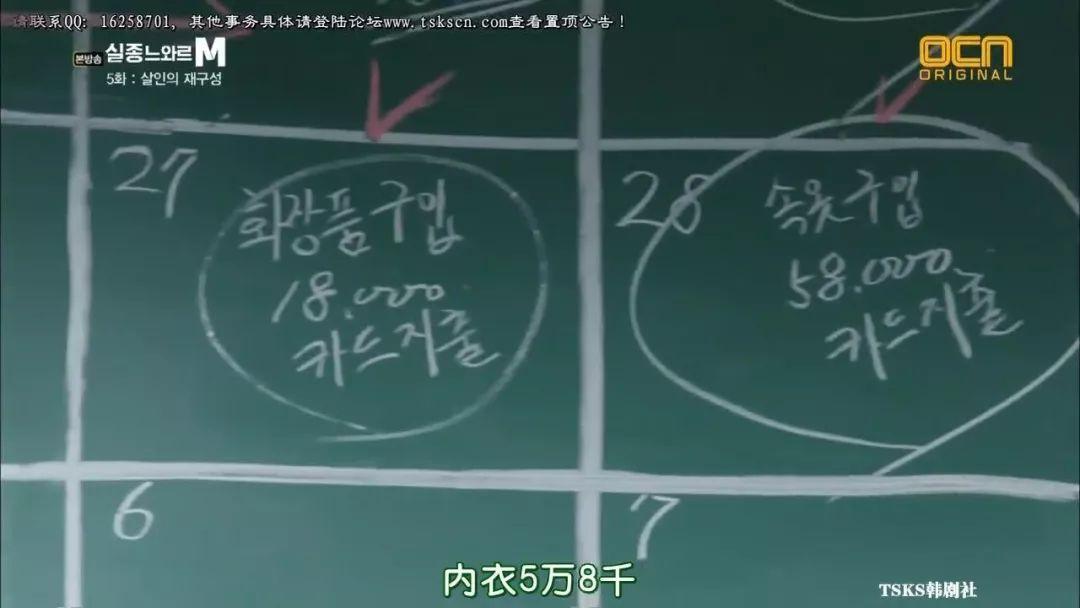 请联系QQ: 16258701, 其他事务具体请登陆论坛www.tskscn.com查看置顶公告!
본방송 실종느와르 M
5화 : 살인의 재구성
OCN
ORIGINAL
27
화장품 구입
18.000
카드지출
28
속옷 구입
58.000
카드지출
6
7
内衣5万8千
TSKS韩剧社